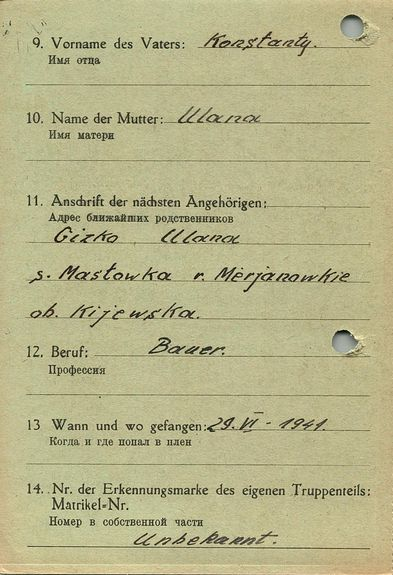 9. Vorname des Vaters: Konstanty.
Имя отца
10. Name der Mutter: Ulana
Имя матери
11. Anschrift der nächsten Angehörigen:
Адрес ближайших родственников
Gizko Ulana
s. Masłowka r. Merjanowkie
ob. Kijewska.
12. Beruf: Bauer.
Профессия
13 Wann und wo gefangen: 29. VI - 1941.
Когда и где попал в плен
14. Nr. der Erkennungsmarke des eigenen Truppenteils:
Matrikel=Nr.
Номер в собственной части
Unbekannt.